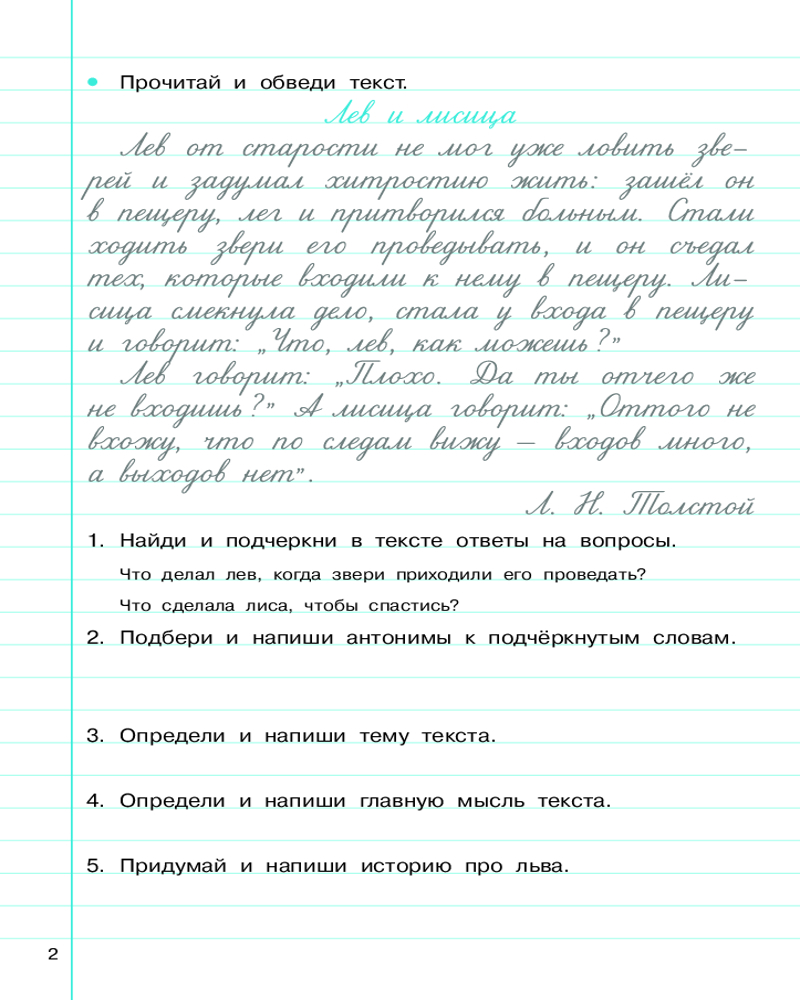 • Прочитай и обведи текст.
Лев и лисица
Лев от старости не мог уже ловить зве-
рей и задумал хитростию жить: зашёл он
в пещеру, лег и притворился больным. Стали
ходить звери его проведывать, и он съедал
тех, которые входили к нему в пещеру. Ли-
сица смекнула дело, стала у входа в пещеру
и говорит: „Что, лев, как можешь?”
Лев говорит: „Плохо. Да ты отчего же
не входишь?” А лисица говорит: „Оттого не
вхожу, что по следам вижу — входов много,
а выходов нет”.
Л. Н. Толстой
1. Найди и подчеркни в тексте ответы на вопросы.
Что делал лев, когда звери приходили его проведать?
Что сделала лиса, чтобы спастись?
2. Подбери и напиши антонимы к подчёркнутым словам.
3. Определи и напиши тему текста.
4. Определи и напиши главную мысль текста.
5. Придумай и напиши историю про льва.
2